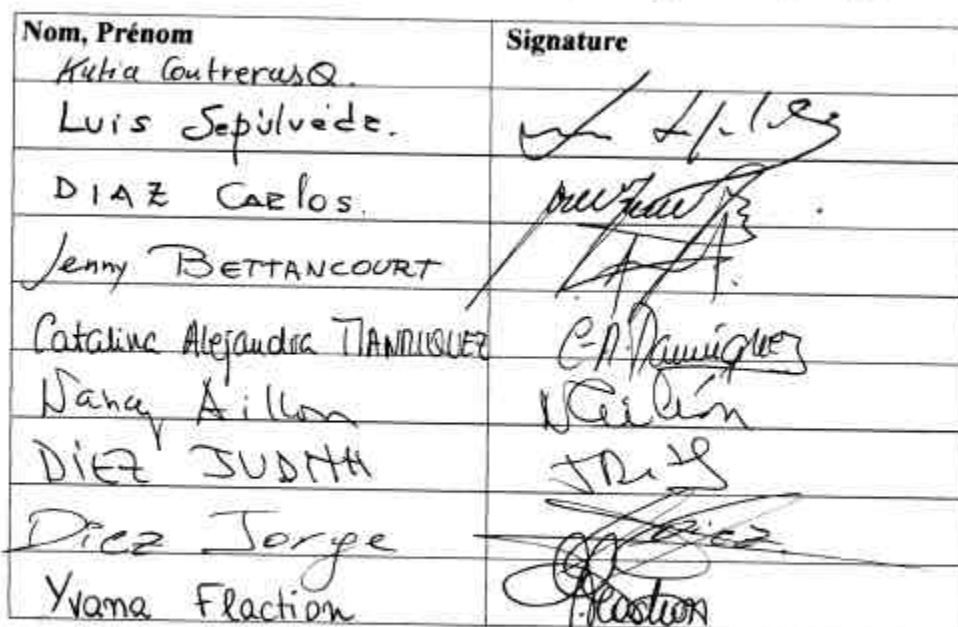 Nom, Prénom Signature
Katia Contreras Q.
Luis Sepúlveda.
DIAZ Carlos.
Jenny BETTANCOURT
Catalina Alejandra MANRIQUEZ C.A. Manriquez
Nancy Aillon N Aillón
DiEZ JUDITH
Diez Jorge Diez
Yvana Flaction Y. Flaction